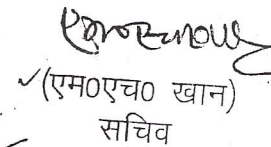 (एम०एच० खान)
सचिव